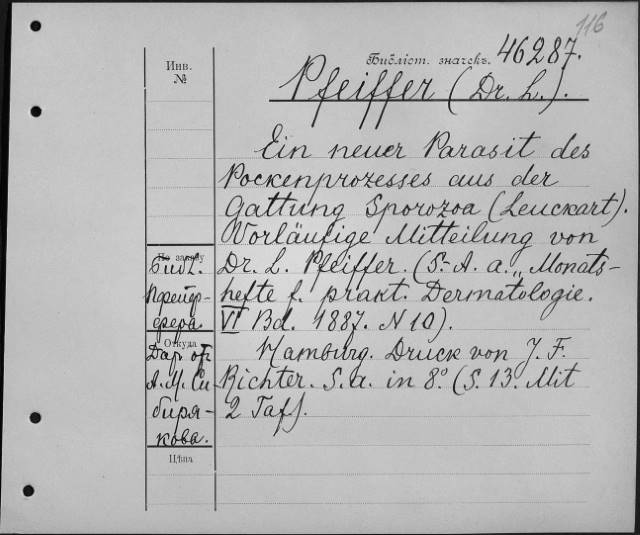 116
Инв.
№
Библіот. значекъ. 46287.
Pfeiffer (Dr. L.).
Ein neuer Parasit des
Pockenprozesses aus der
Gattung Sporozoa (Leuckart).
Vorläufige Mitteilung von
Dr. L. Pfeiffer. (S.-A. a. „Monats-
hefte f. prakt. Dermatologie.
VI Bd. 1887. N 10).
Hamburg. Druck von J. F.
Richter. S. a. in 8° (S. 13. Mit
2 Taf).
По заказу
Библ.
Пфейф-
фера
Откуда
Дар от
А. М. Си
биря-
кова.
Цѣна